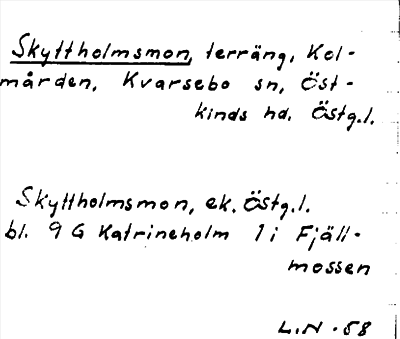 Skyttholmsmon, terräng, Kol-
mården, Kvarsebo sn, Öst-
kinds hd. Östg.l.
Skyttholmsmon, ek. Östg.l.
bl. 9 G Katrineholm 1 i Fjäll-
mossen
L.N. -58